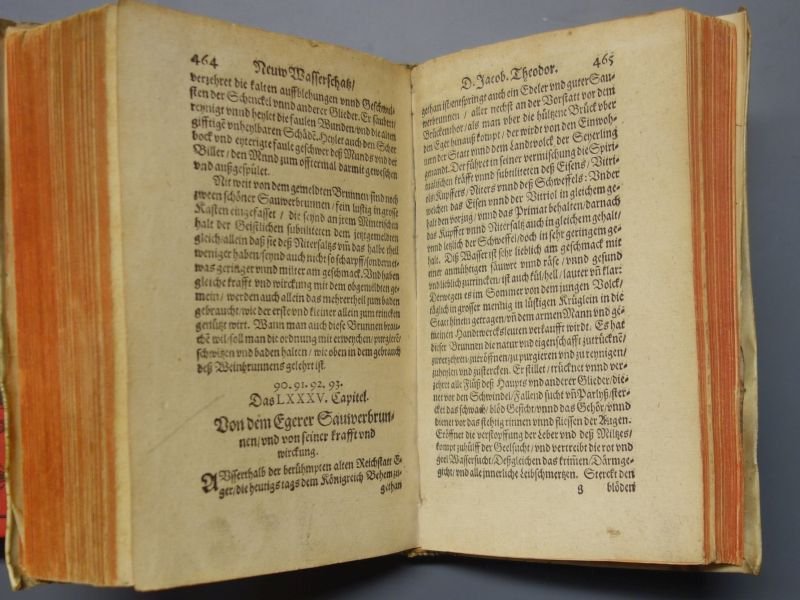 464
Neuw Wasserschatz/
verzehret die kalten auffblehungen vnnd Geschwul-
sten der Schenckel vnnd anderer Glieder. Er säubert/
reynigt vnnd heylet die faulen Wunden/vnd die alten
gifftigē vnheylbaren Schädē. Heylet auch den Schar
bock vnd eyterigte faule geschwer deß Munds vnd der
Biller/den Mund zum offtermal darmit geweschen
vnd außgespület.
Nit weit von dem gemeldten Brunnen sind noch
zween schöner Sauwerbrunnen/fein lustig in grosse
Kästen eingefasset/ die seynd an jrem Minerischen
halt der Geistlichen subtiliteten dem jetztgemeldten
gleich/allein daß sie deß Nitersaltzs vm̄ das halbe theil
weniger haben/seynd auch nicht so scharpff/sondern et-
was geringer vnnd milter am geschmack. Vnd haben
gleiche krafft vnd wirckung mit dem obgemeldten ge-
mein/ werden auch allein das mehrertheil zum baden
gebraucht/wie der erste vnd kleiner allein zum trincken
genützt wirt. Wann man auch diese Brunnen brau-
chē wil/soll man die ordnung mit erweychen/purgierē/
schwitzen vnd baden halten/ wie oben in dem gebrauch
deß Weinbrunnens gelehrt ist.
90. 91. 92. 93.
Das LXXXV. Capitel.
Von dem Egerer Sauwerbrun-
nen/vnd von seiner krafft vnd
wirckung.
AVsserthalb der berühmpten alten Reichstatt E-
ger/die heutigs tags dem Königreich Behem zu-
gethan
D. Jacob. Theodor.
465
gethan ist/entspringt auch ein Edeler vnd guter Sau-
werbrunnen / aller nechst an der Vorstatt vor dem
Brückenthor/als man vber die hültzene Brück vber
den Eger hinauß kompt/ der wirdt von den Einwoh-
nern der Statt vnnd dem Landvolck der Seyerling
genandt. Der führet in seiner vermischung die Spiri-
tualischen kräfft vnnd subtiliteten deß Eisens/ Vitri-
els/Kupffers/Niters vnnd deß Schweffels: Vnder
welchen das Eisen vnnd der Vitriol in gleichem ge-
halt den vorzug/vnnd das Primat behalten/darnach
das Kupffer vnnd Nitersaltz auch in gleichem gehalt/
vnnd letzlich der Schweffel/doch in sehr geringem ge-
halt. Diß Wasser ist sehr lieblich am geschmack mit
einer anmütigen säuwre vnnd räse/ vnnd gesund
vnd lieblich zu trincken/ist auch kül/hell/lauter vn̄ klar:
Derwegen es im Sommer von dem jungen Volck/
täglich in grosser mennig in lüstigen Krüglein in die
Statt hinein getragen/vn̄ dem armen Mann vnd ge-
meinen Handtwercksleuten verkaufft wirdt. Es hat
dieser Brunnen die natur vnd eigenschafft zu trücknē/
zu verzehrēn/zu eröffnen/zu purgieren vnd zu reynigen/
zu heylen vnd zu stercken. Er stillet/ trücknet vnnd ver-
zehrt alle Flüß deß Haupts vnd anderer Glieder/die-
net vor den Schwindel/Fallend sucht vn̄ Parlyß/ster-
cket das schwach/blöd Gesicht/vnnd das Gehör/vnnd
dienet vor das stehtig rinnen vnnd fliessen der Augen.
Eröffnet die verstopffung der Leber vnd deß Miltzes/
kompt zu hülff der Geelsucht/ vnd vertreibt die rot vnd
geel Wassersucht/Deßgleichen das krim̄en/Därmge-
gicht/vnd alle jnnerliche Leibschmertzen. Sterckt den
g
blöden